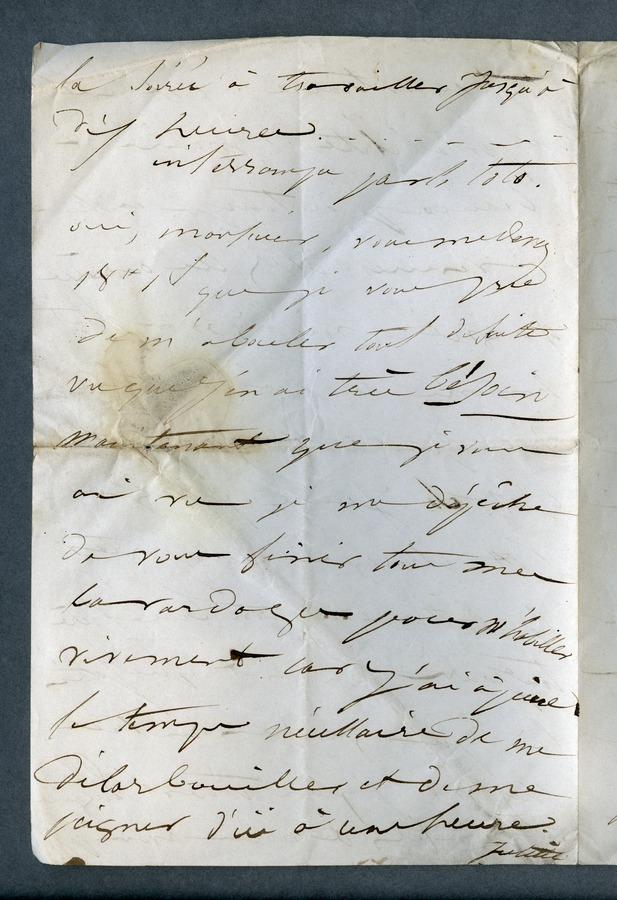 la soirée à travailler jusqu'à
dix heures.
interrompu par le Toto.
oui, monsieur, vous me devez
18 f que je vous prie
de m'abouler tout de suite
vu que j'en ai très bésoin
maintenant que je vous
ai vu je me dépêche
de vous finir tous mes
bavardages pour m'habiller
vivement car j'ai à peine
le temps nécessaire de me
débarbouiller et de me
peigner d'ici à une heure.
Juliette